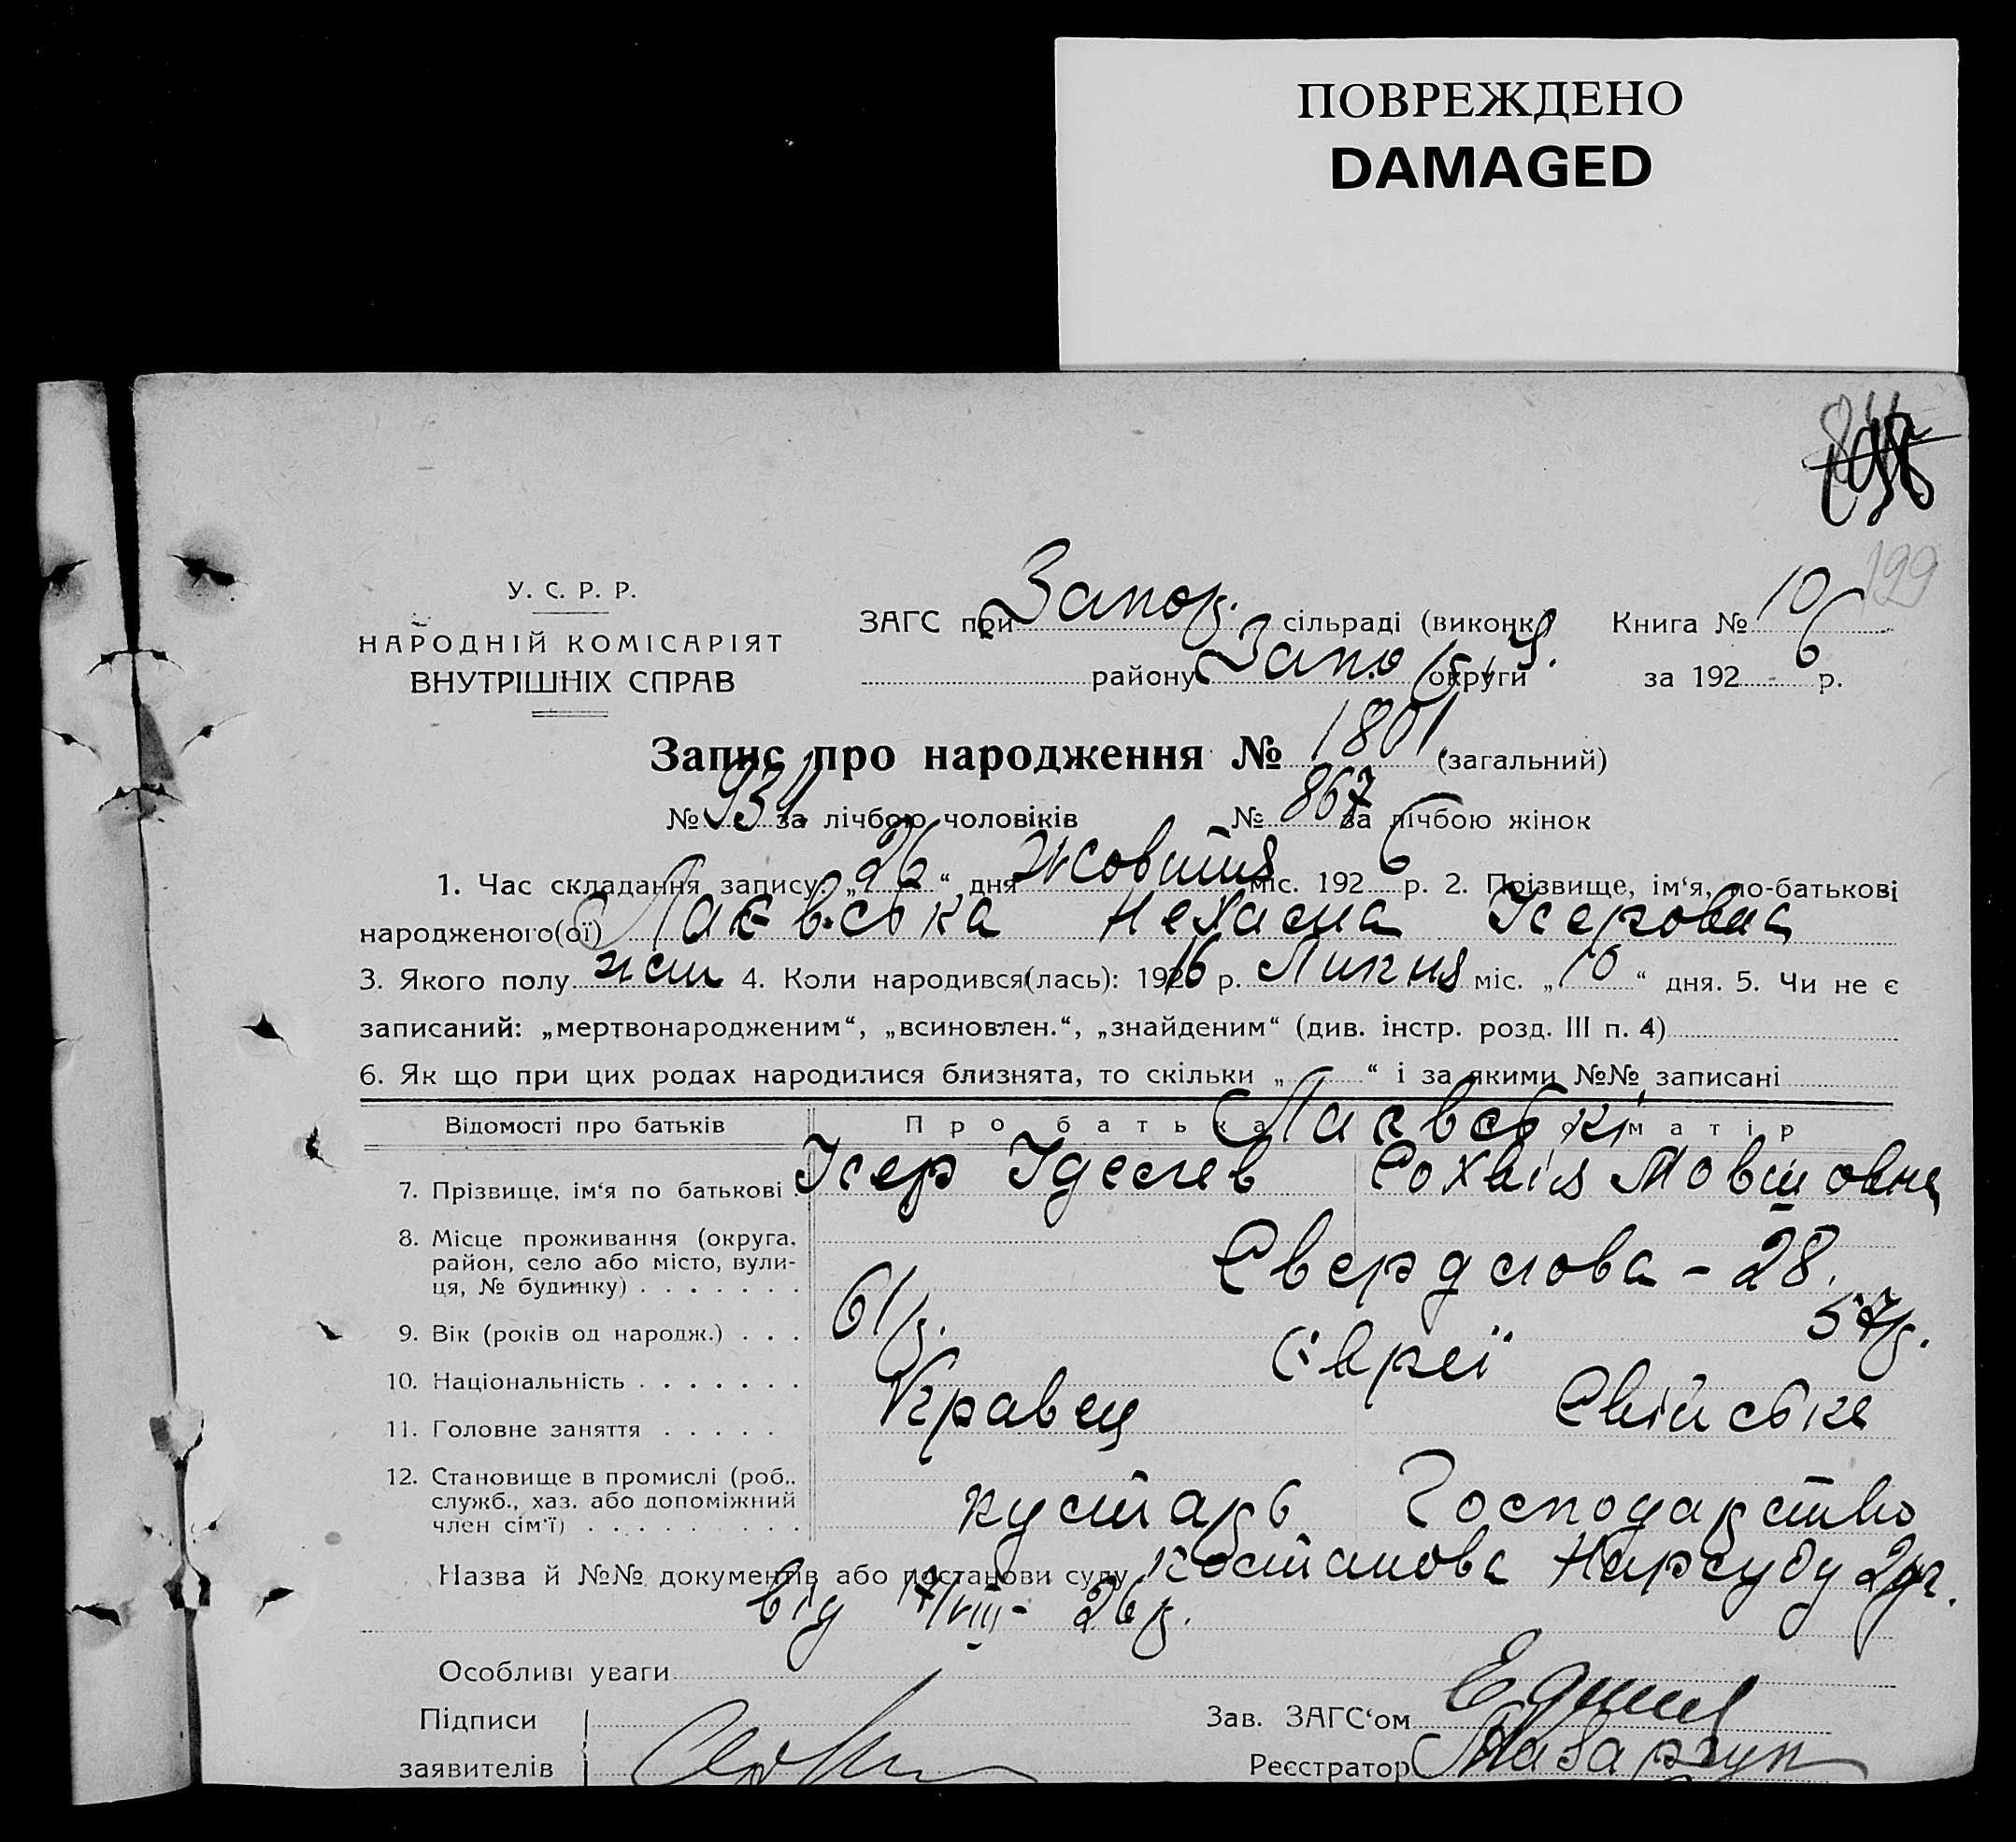 ПОВРЕЖДЕНО
DAMAGED
199
У. С. Р. Р.
НАРОДНІЙ КОМІСАРІЯТ
ВНУТРІШНІХ СПРАВ
ЗАГС при Запор. сільраді (виконк
Книга № 10
району Запор округи
за 1926 р.
Запис про народження № 1801 (загальний)
№ 934 за лічбою чоловіків № 867 за лічбою жінок
1. Час складання запису: „26“ дня Жовтня міс. 1926 р. 2. Прізвище, ім‘я, по-батькові
народженого(ої) Лаєвська Нехама Ісеровна
3. Якого полу жін 4. Коли народився(лась): 1916 р. Липня міс. „10“ дня. 5. Чи не є
записаний: „мертвонародженим“, „всиновлен.“, „знайденим“ (див. інстр. розд. III п. 4)
6. Як що при цих родах народилися близнята, то скільки „ “ і за якими №№ записані
Відомості про батьків Про батька Лаєвські матір
7. Прізвище, ім‘я по батькові Ісер Іделев Сохвія Мовшовна
8. Місце проживання (округа,
район, село або місто, вули-
ця, № будинку) Свердлова - 28.
9. Вік (років од народж.) 61 р. 57 р.
10. Національність Євреї
11. Головне заняття Кравец Свійське
12. Становище в промислі (роб.,
служб., хаз. або допоміжний
член сім‘ї) кустарь Господарство
Назва й №№ документів або постанови суду Постанова Нарсуду 2 дг.
від 17/VIII - 26 р.
Особливі уваги
Підписи
Зав. ЗАГС‘ом
заявителів
Реєстратор